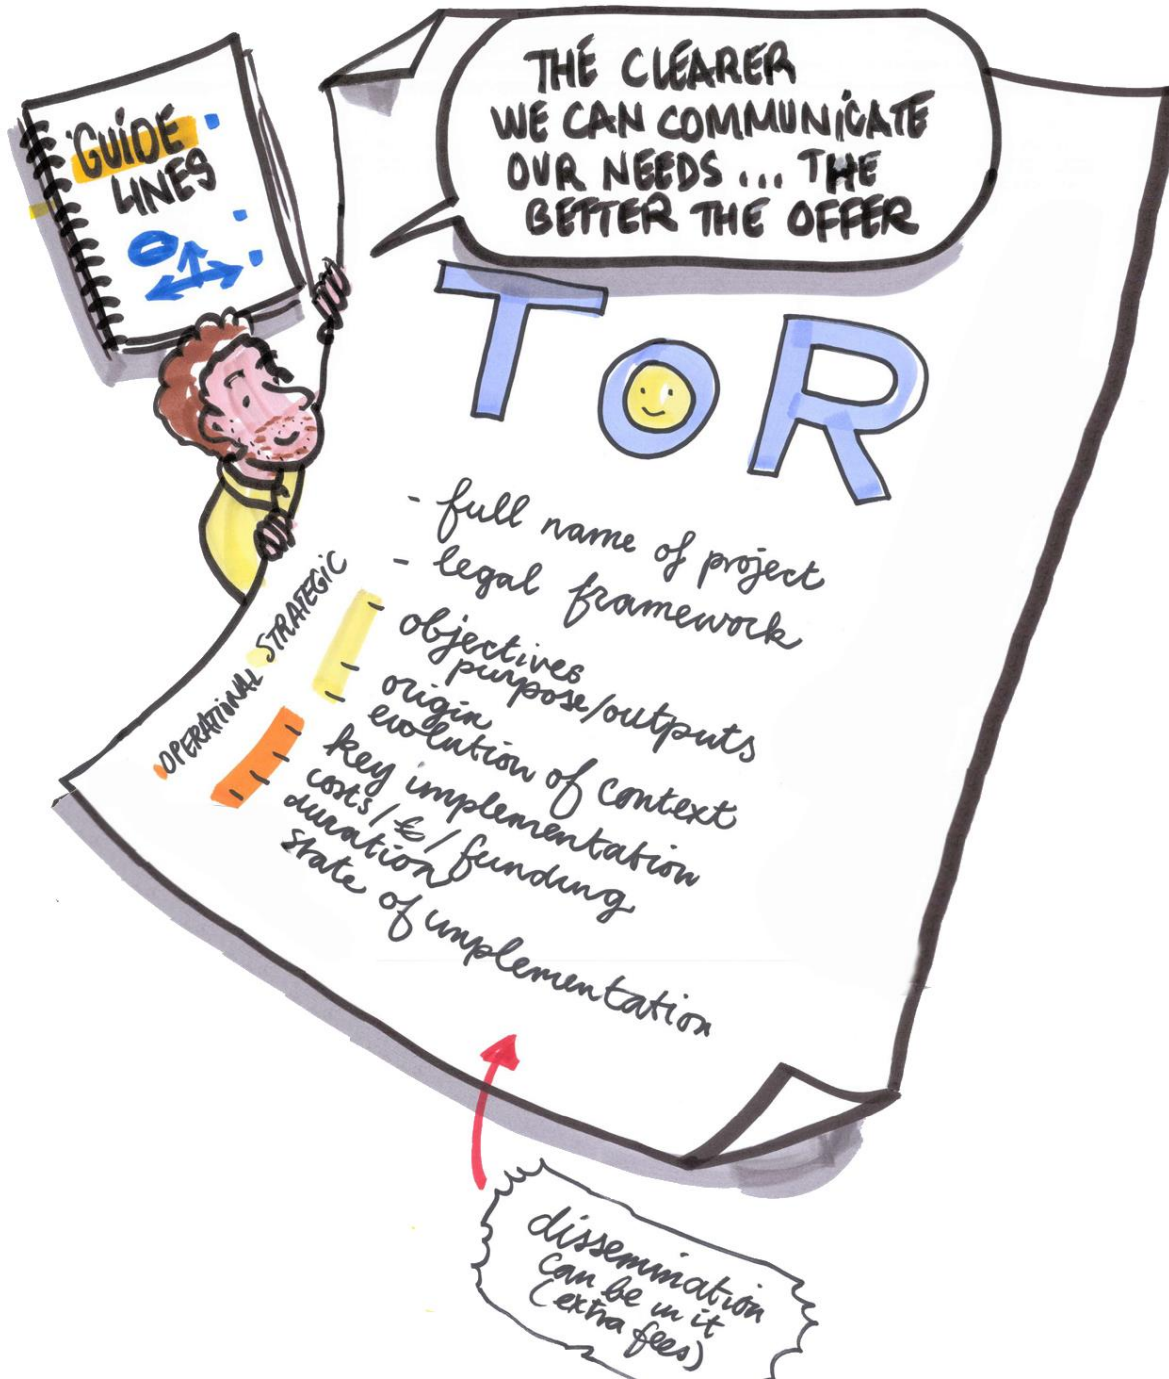 GUIDE
LINES
THE CLEARER
WE CAN COMMUNICATE
OUR NEEDS ... THE
BETTER THE OFFER
ToR
- full name of project
- legal framework
STRATEGIC
- objectives
purpose/outputs
- origin
- evolution of context
OPERATIONAL
- key implementation
- costs/€/funding
- duration
- state of implementation
dissemination
can be in it
(extra fees)